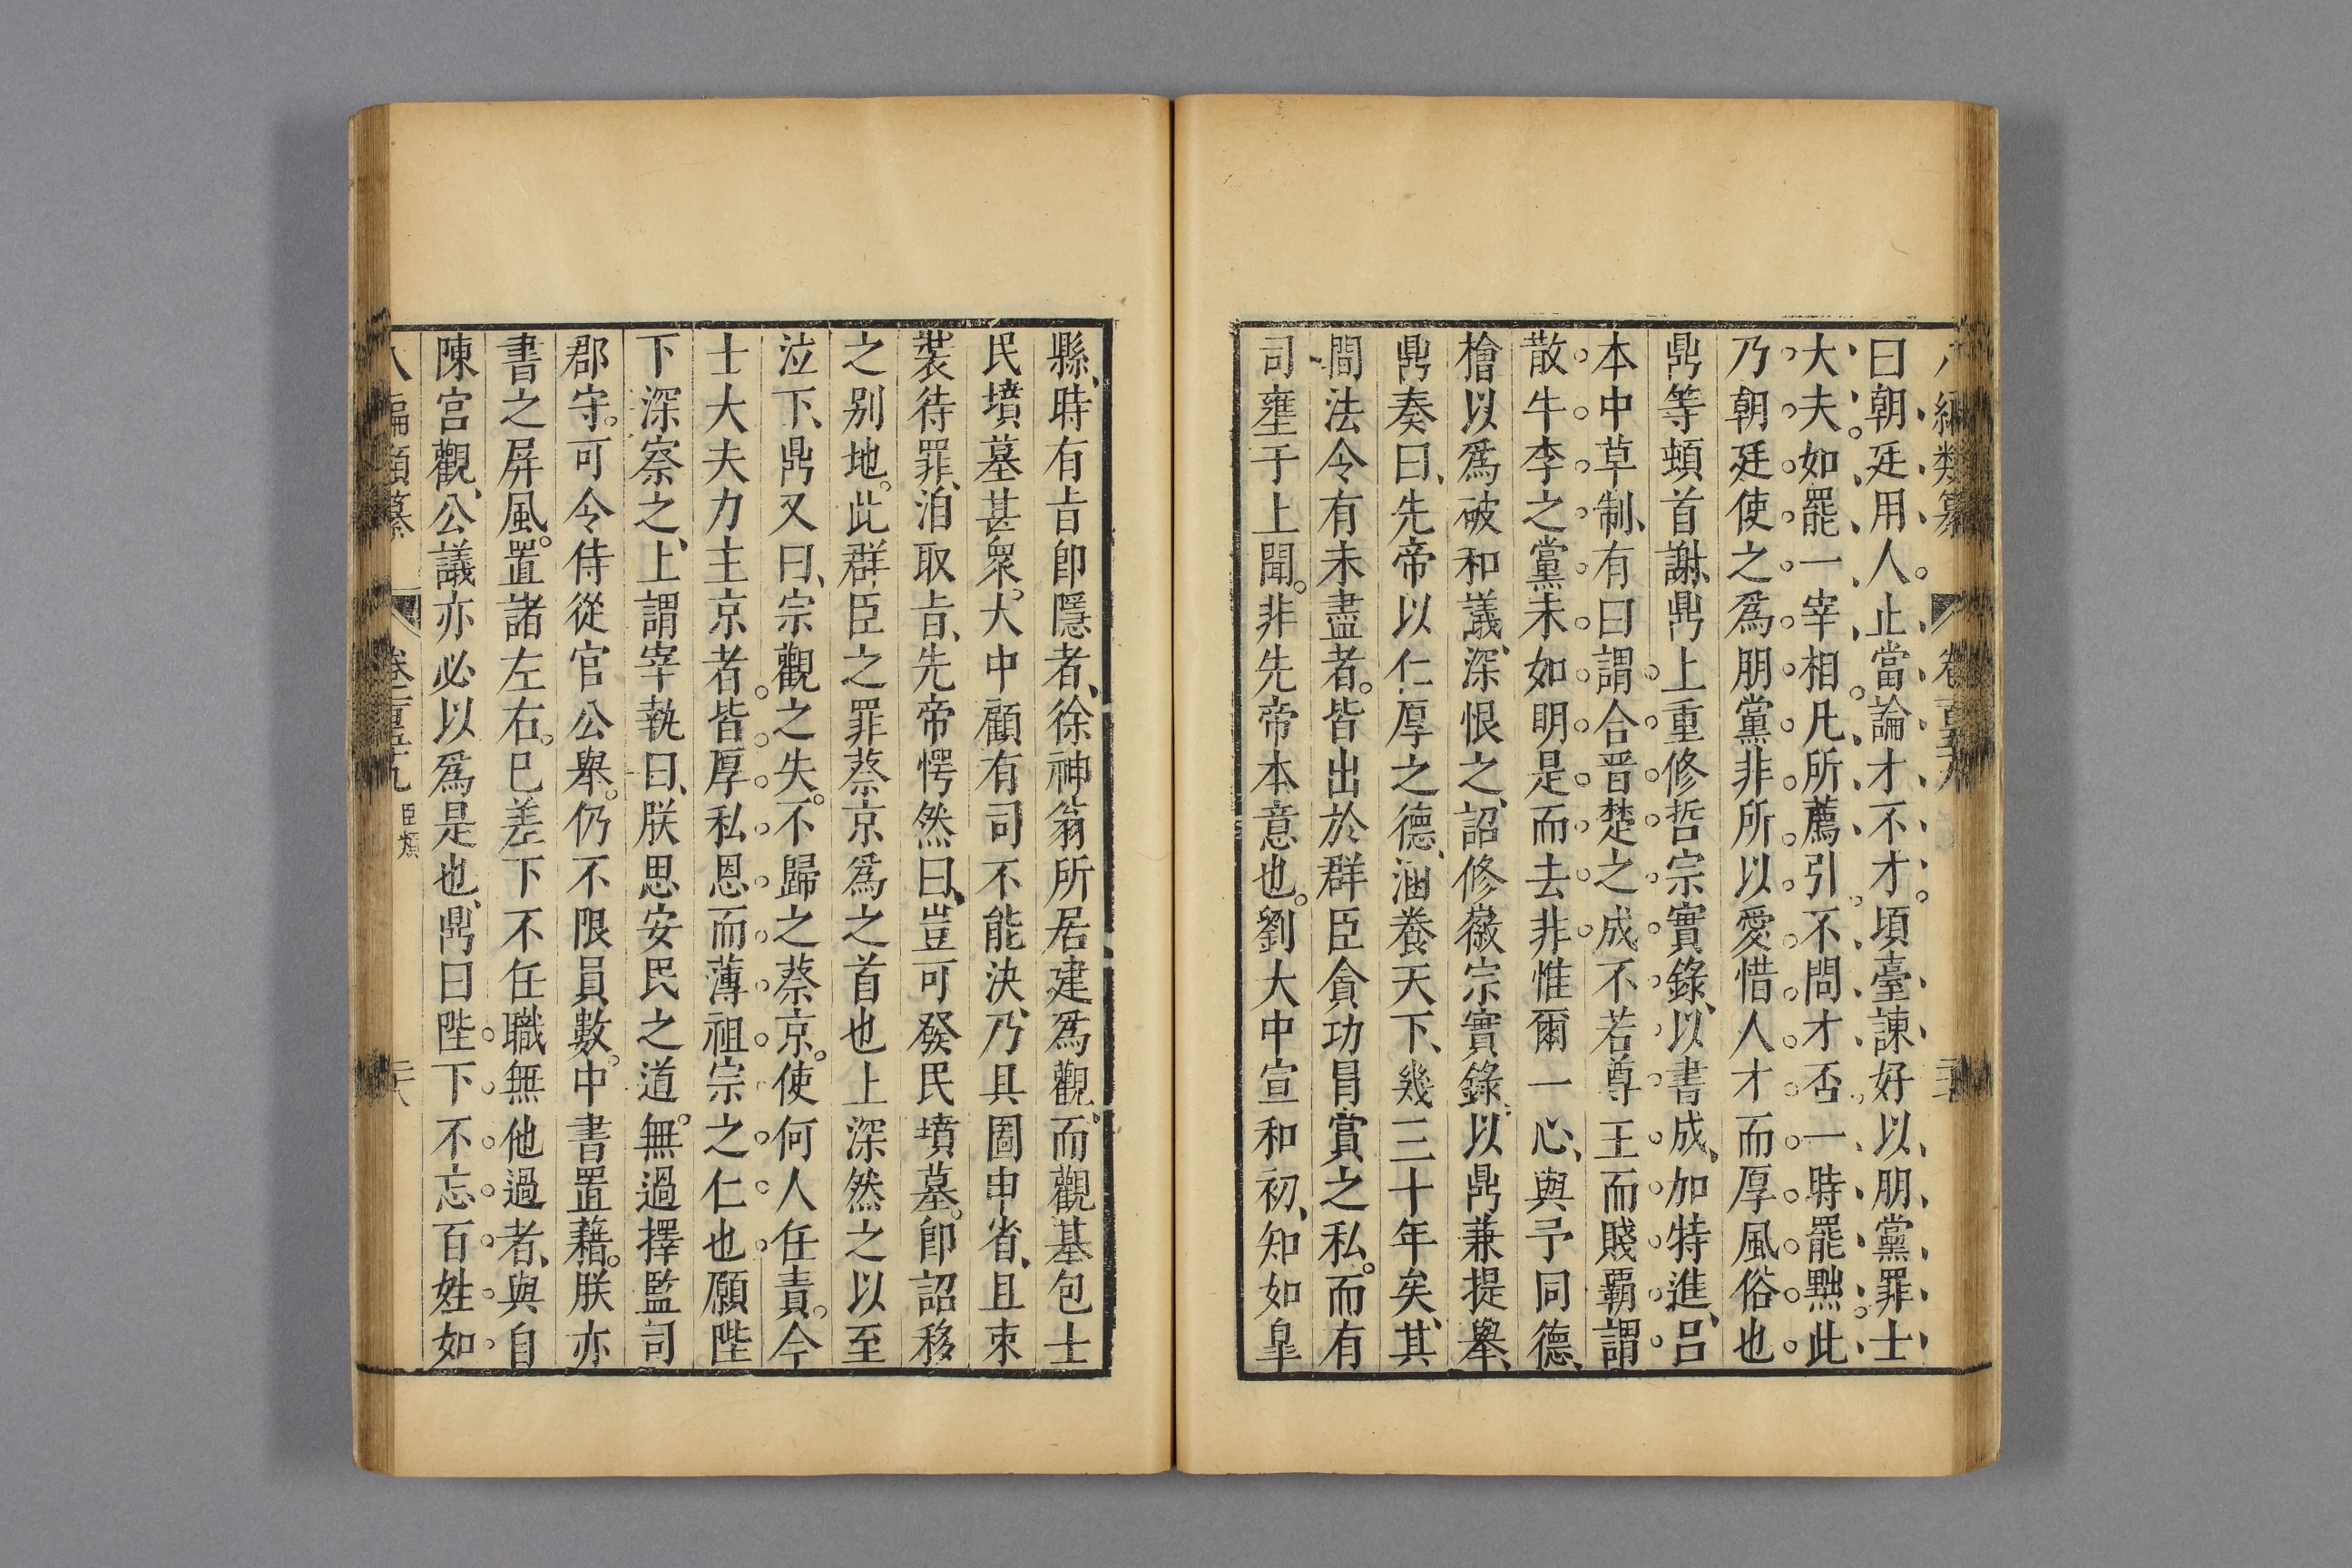 八編類纂 卷百五九
曰朝廷用人。止當論才不才。頃臺諫好以朋黨罪士
大夫。如罷一宰相。凡所薦引不問才否一時罷黜。此
乃朝廷使之爲朋黨非所以愛惜人才而厚風俗也
鼎等頓首謝、鼎上重修哲宗實錄、以書成、加特進、呂
本中草制、有曰謂合晉楚之成。不若尊王而賤覇謂
散牛李之黨未如明是而去非惟爾一心、與予同德、
檜以爲破和議、深恨之、詔修徽宗實錄、以鼎兼提舉、
鼎奏曰、先帝以仁厚之德、涵養天下、幾三十年矣、其
間法令有未盡者。皆出於群臣貪功冐賞之私。而有
司壅于上聞。非先帝本意也。劉大中宣和初、知如臯
縣、時有㫖卽隱者、徐神翁所居建爲觀。而觀基包士
民墳墓甚衆。大中顧有司不能決、乃具圖申省、且束
裝待罪、洎取㫖、先帝愕然曰、豈可發民墳墓。卽詔移
之别地。此群臣之罪蔡京爲之首也上深然之以至
泣下、鼎又曰、宗觀之失。不歸之蔡京。使何人任責。今
士大夫力主京者皆厚私恩而薄祖宗之仁也願陛
下深察之、上謂宰執曰、朕思安民之道。無過擇監司
郡守。可令侍從官公舉。仍不限員數。中書置籍。朕亦
書之屏風。置諸左右。已差下不任職無他過者、與自
陳宫觀、公議亦必以爲是也、鼎曰陛下不忘百姓如
八編類纂 卷一百五九 臣類 二六